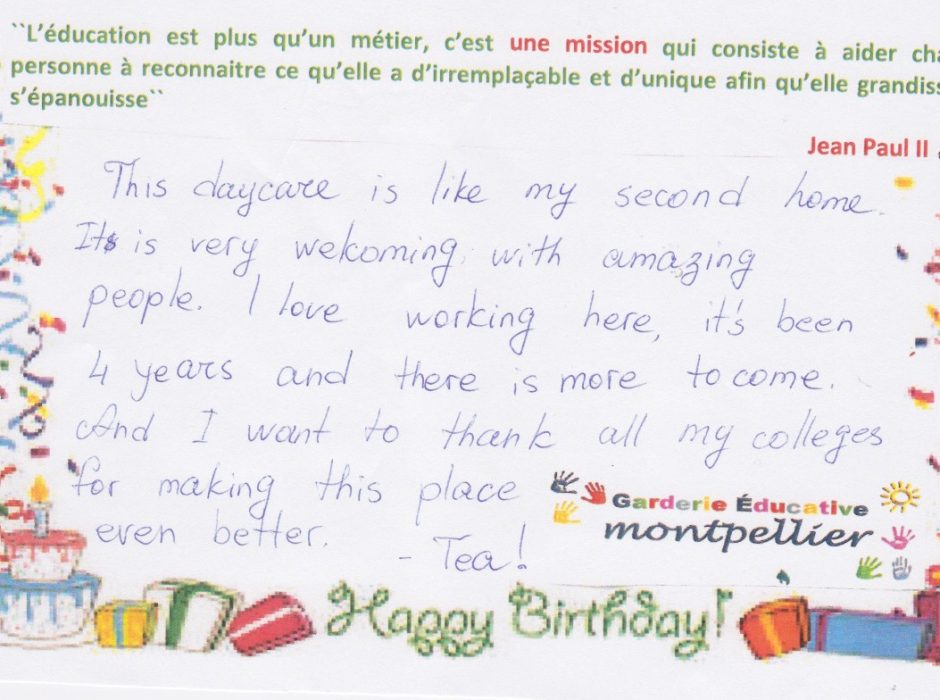 ``L'éducation est plus qu'un métier, c'est une mission qui consiste à aider cha
personne à reconnaitre ce qu'elle a d'irremplaçable et d'unique afin qu'elle grandiss
s'épanouisse``
Jean Paul II
This daycare is like my second home.
Its is very welcoming, with amazing
people. I love working here, it's been
4 years and there is more to come.
And I want to thank all my colleges
for making this place
even better.
- Tea!
Garderie Éducative
montpellier
Happy Birthday!